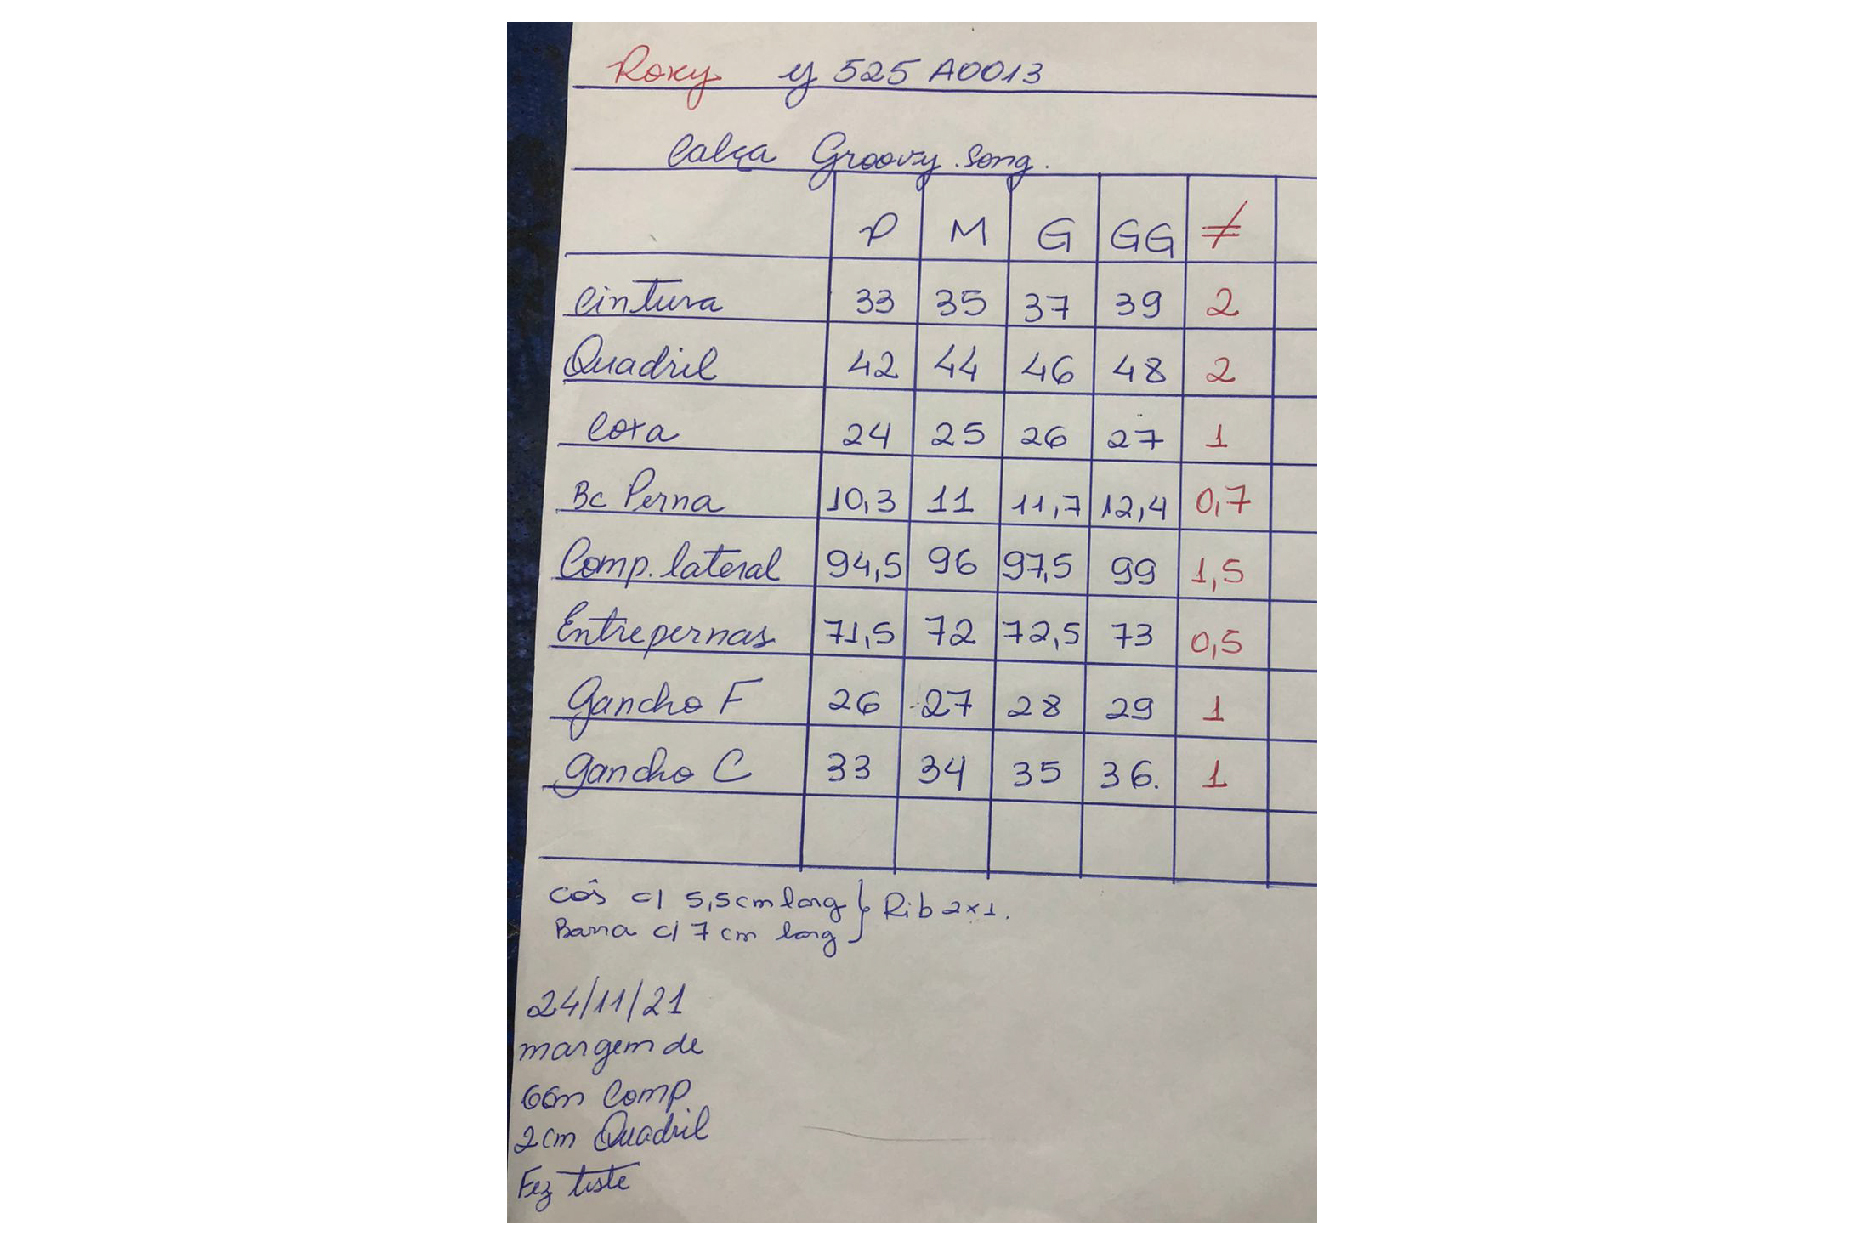 Roxy y 525 A0013
Calça Groovy Song.
P M G GG ≠
Cintura 33 35 37 39 2
Quadril 42 44 46 48 2
Coxa 24 25 26 27 1
Bc Perna 10,3 11 11,7 12,4 0,7
Comp. lateral 94,5 96 97,5 99 1,5
Entrepernas 71,5 72 72,5 73 0,5
Gancho F 26 27 28 29 1
Gancho C 33 34 35 36. 1
Cós c/ 5,5cm larg } Rib 2x1.
Barra c/ 7 cm larg
24/11/21
margem de
Comp
2cm Quadril
Fez teste